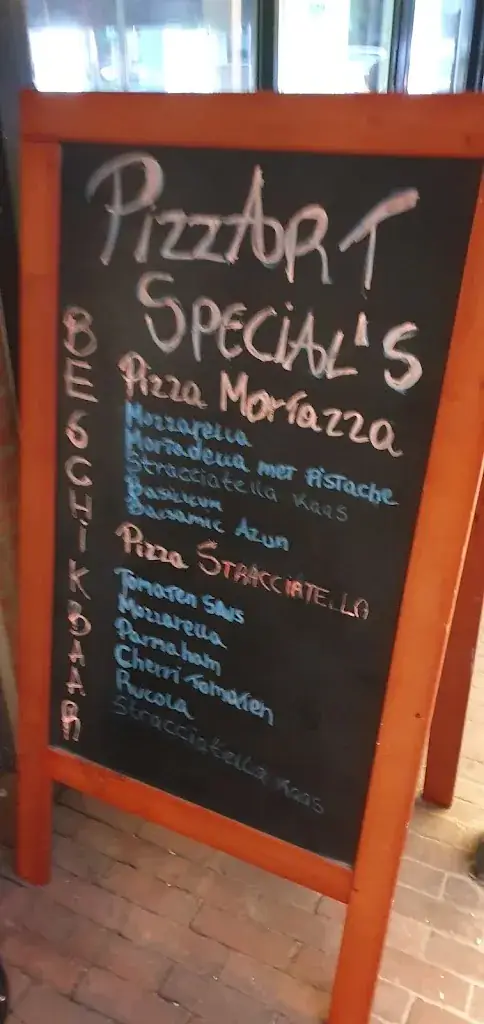 PizzART
SPECiAL'S
BESCHiKBAAR
Pizza Mortazza
Mozzarella
Mortadella met Pistache
Stracciatella Kaas
Basilicum
Balsamic Azijn
Pizza STRACCIATELLA
Tomaten Saus
Mozzarella
Parmaham
Cherri Tomaten
Rucola
Stracciatella Kaas